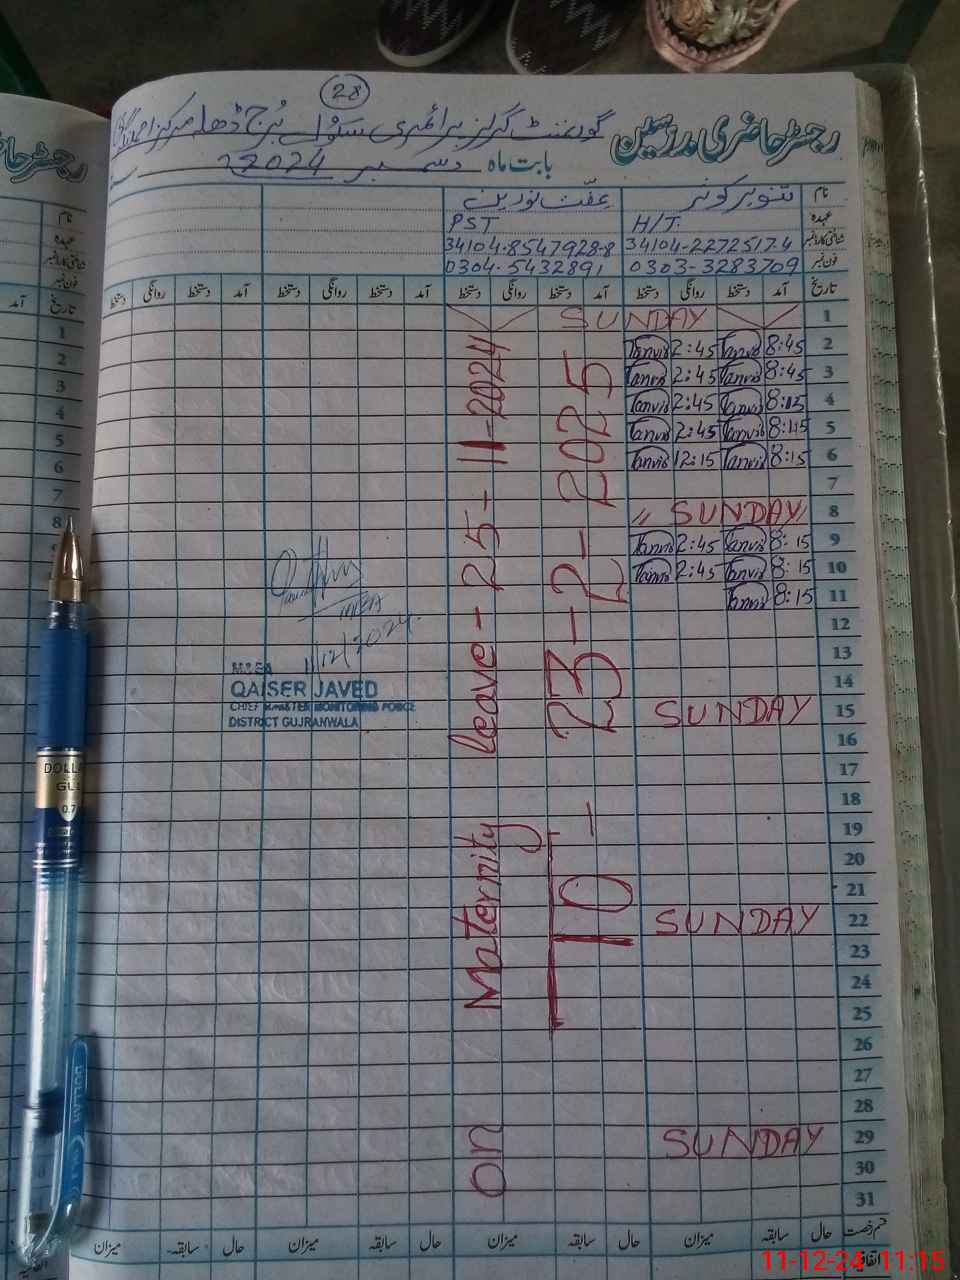 28
رجسٹر حاضری مدرسین
گورنمنٹ گرلز پرائمری سکول برج ڈھلہ مرکز احمد نگر
بابت ماہ دسمبر 2024
نام تنویر کوثر عفت نورین
عہدہ H/T. PST
شناختی کارڈ نمبر 34104-2272517-4 34104-8547928-8
فون نمبر 0303-3283709 0304-5432891
تاریخ آمد دستخط روانگی دستخط آمد دستخط روانگی دستخط آمد دستخط روانگی دستخط آمد دستخط روانگی دستخط
1 SUNDAY
2 8:45 Tanvir 2:45 Tanvir
3 8:45 Tanvir 2:45 Tanvir
4 Tanvir 2:45 Tanvir
5 8:15 Tanvir 2:45 Tanvir
6 8:15 Tanvir 12:15 Tanvir
7
8 " SUNDAY "
9 8:15 Tanvir 2:45 Tanvir
10 8:15 Tanvir 2:45 Tanvir
11 8:15 Tanvir
12
13
14
15 SUNDAY
16
17
18
19
20
21
22 SUNDAY
23
24
25
26
27
28
29 SUNDAY
30
31
on Maternity leave - 25-11-2024
To - 23-2-2025
11/12/2024
M&EA
QAISER JAVED
CHIEF MINISTER MONITORING FORCE
DISTRICT GUJRANWALA
قسم رخصت حال سابقہ میزان حال سابقہ میزان حال سابقہ میزان حال سابقہ میزان
اتفاقیہ
DOLLAR
0.7
DOLLAR
نام
عہدہ
شناختی کارڈ نمبر
فون نمبر
تاریخ
آمد
1
2
3
4
5
6
7
8
11-12-24 11:15